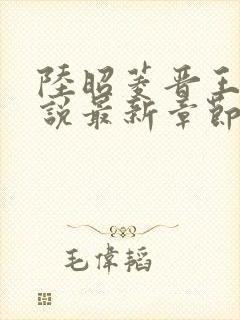 陸昭菱晋王
説最新章節
毛偉韜